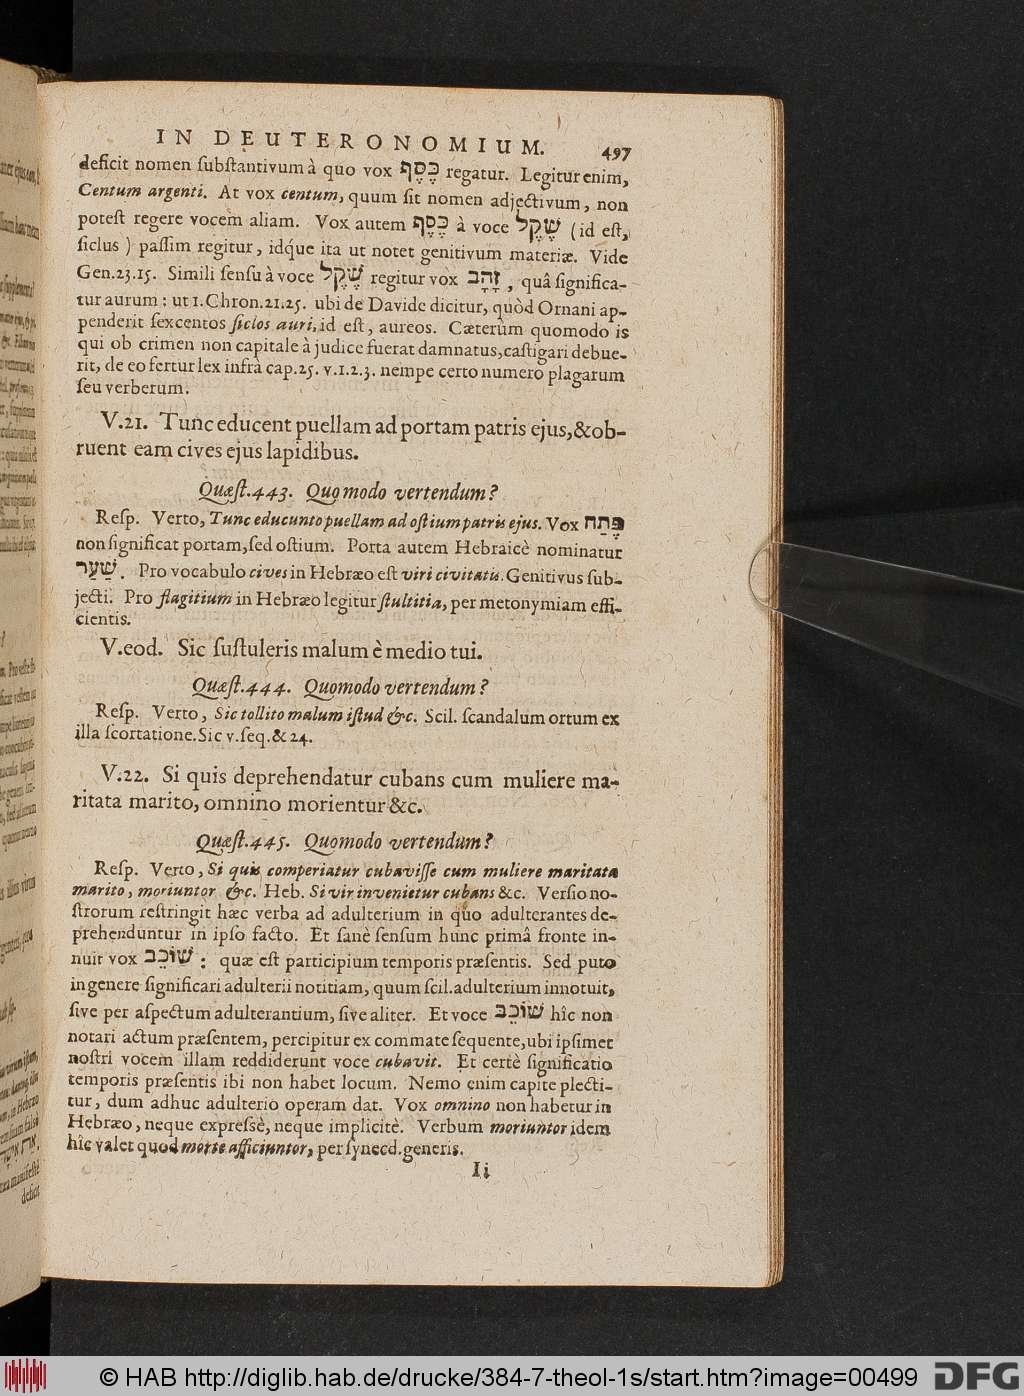 IN DEUTERONOMIUM. 497
deficit nomen ſubſtantivum à quo vox כֶּסֶף regatur. Legitur enim,
Centum argenti. At vox centum, quum ſit nomen adjectivum, non
poteſt regere vocem aliam. Vox autem כֶּסֶף à voce שֶׁקֶל (id eſt,
ſiclus) paſſim regitur, idq́ue ita ut notet genitivum materiæ. Vide
Gen.23.15. Simili ſenſu à voce שֶׁקֶל regitur vox זָהָב, quâ ſignifica-
tur aurum: ut 1.Chron.21.25. ubi de Davide dicitur, quòd Ornani ap-
penderit ſexcentos ſiclos auri, id eſt, aureos. Cæterùm quomodo is
qui ob crimen non capitale à judice fuerat damnatus, caſtigari debue-
rit, de eo fertur lex infrà cap.25. v.1.2.3. nempe certo numero plagarum
ſeu verberum.
V.21. Tunc educent puellam ad portam patris ejus, & ob-
ruent eam cives ejus lapidibus.
Quæſt.443. Quomodo vertendum?
Reſp. Verto, Tunc educunto puellam ad oſtium patris ejus. Vox פֶּתַח
non ſignificat portam, ſed oſtium. Porta autem Hebraicè nominatur
שַׁעַר. Pro vocabulo cives in Hebræo eſt viri civitatis. Genitivus ſub-
jecti. Pro flagitium in Hebræo legitur ſtultitia, per metonymiam effi-
cientis.
V.eod. Sic ſuſtuleris malum è medio tui.
Quæſt.444. Quomodo vertendum?
Reſp. Verto, Sic tollito malum iſtud &c. Scil. ſcandalum ortum ex
illa ſcortatione. Sic v.ſeq.& 24.
V.22. Si quis deprehendatur cubans cum muliere ma-
ritata marito, omnino morientur &c.
Quæſt.445. Quomodo vertendum?
Reſp. Verto, Si quis comperiatur cubaviſſe cum muliere maritata
marito, moriuntor &c. Heb. Si vir invenietur cubans &c. Verſio no-
ſtrorum reſtringit hæc verba ad adulterium in quo adulterantes de-
prehenduntur in ipſo facto. Et ſanè ſenſum hunc primâ fronte in-
nuit vox שׁוֹכֵב: quæ eſt participium temporis præſentis. Sed puto
in genere ſignificari adulterii notitiam, quum ſcil. adulterium innotuit,
ſive per aſpectum adulterantium, ſive aliter. Et voce שׁוֹכֵב hîc non
notari actum præſentem, percipitur ex commate ſequente, ubi ipſimet
noſtri vocem illam reddiderunt voce cubavit. Et certè ſignificatio
temporis præſentis ibi non habet locum. Nemo enim capite plecti-
tur, dum adhuc adulterio operam dat. Vox omnino non habetur in
Hebræo, neque expreſsè, neque implicitè. Verbum moriuntor idem
hîc valet quod morte afficiuntor, per ſynecd. generis.
Ii
© HAB http://diglib.hab.de/drucke/384-7-theol-1s/start.htm?image=00499
DFG